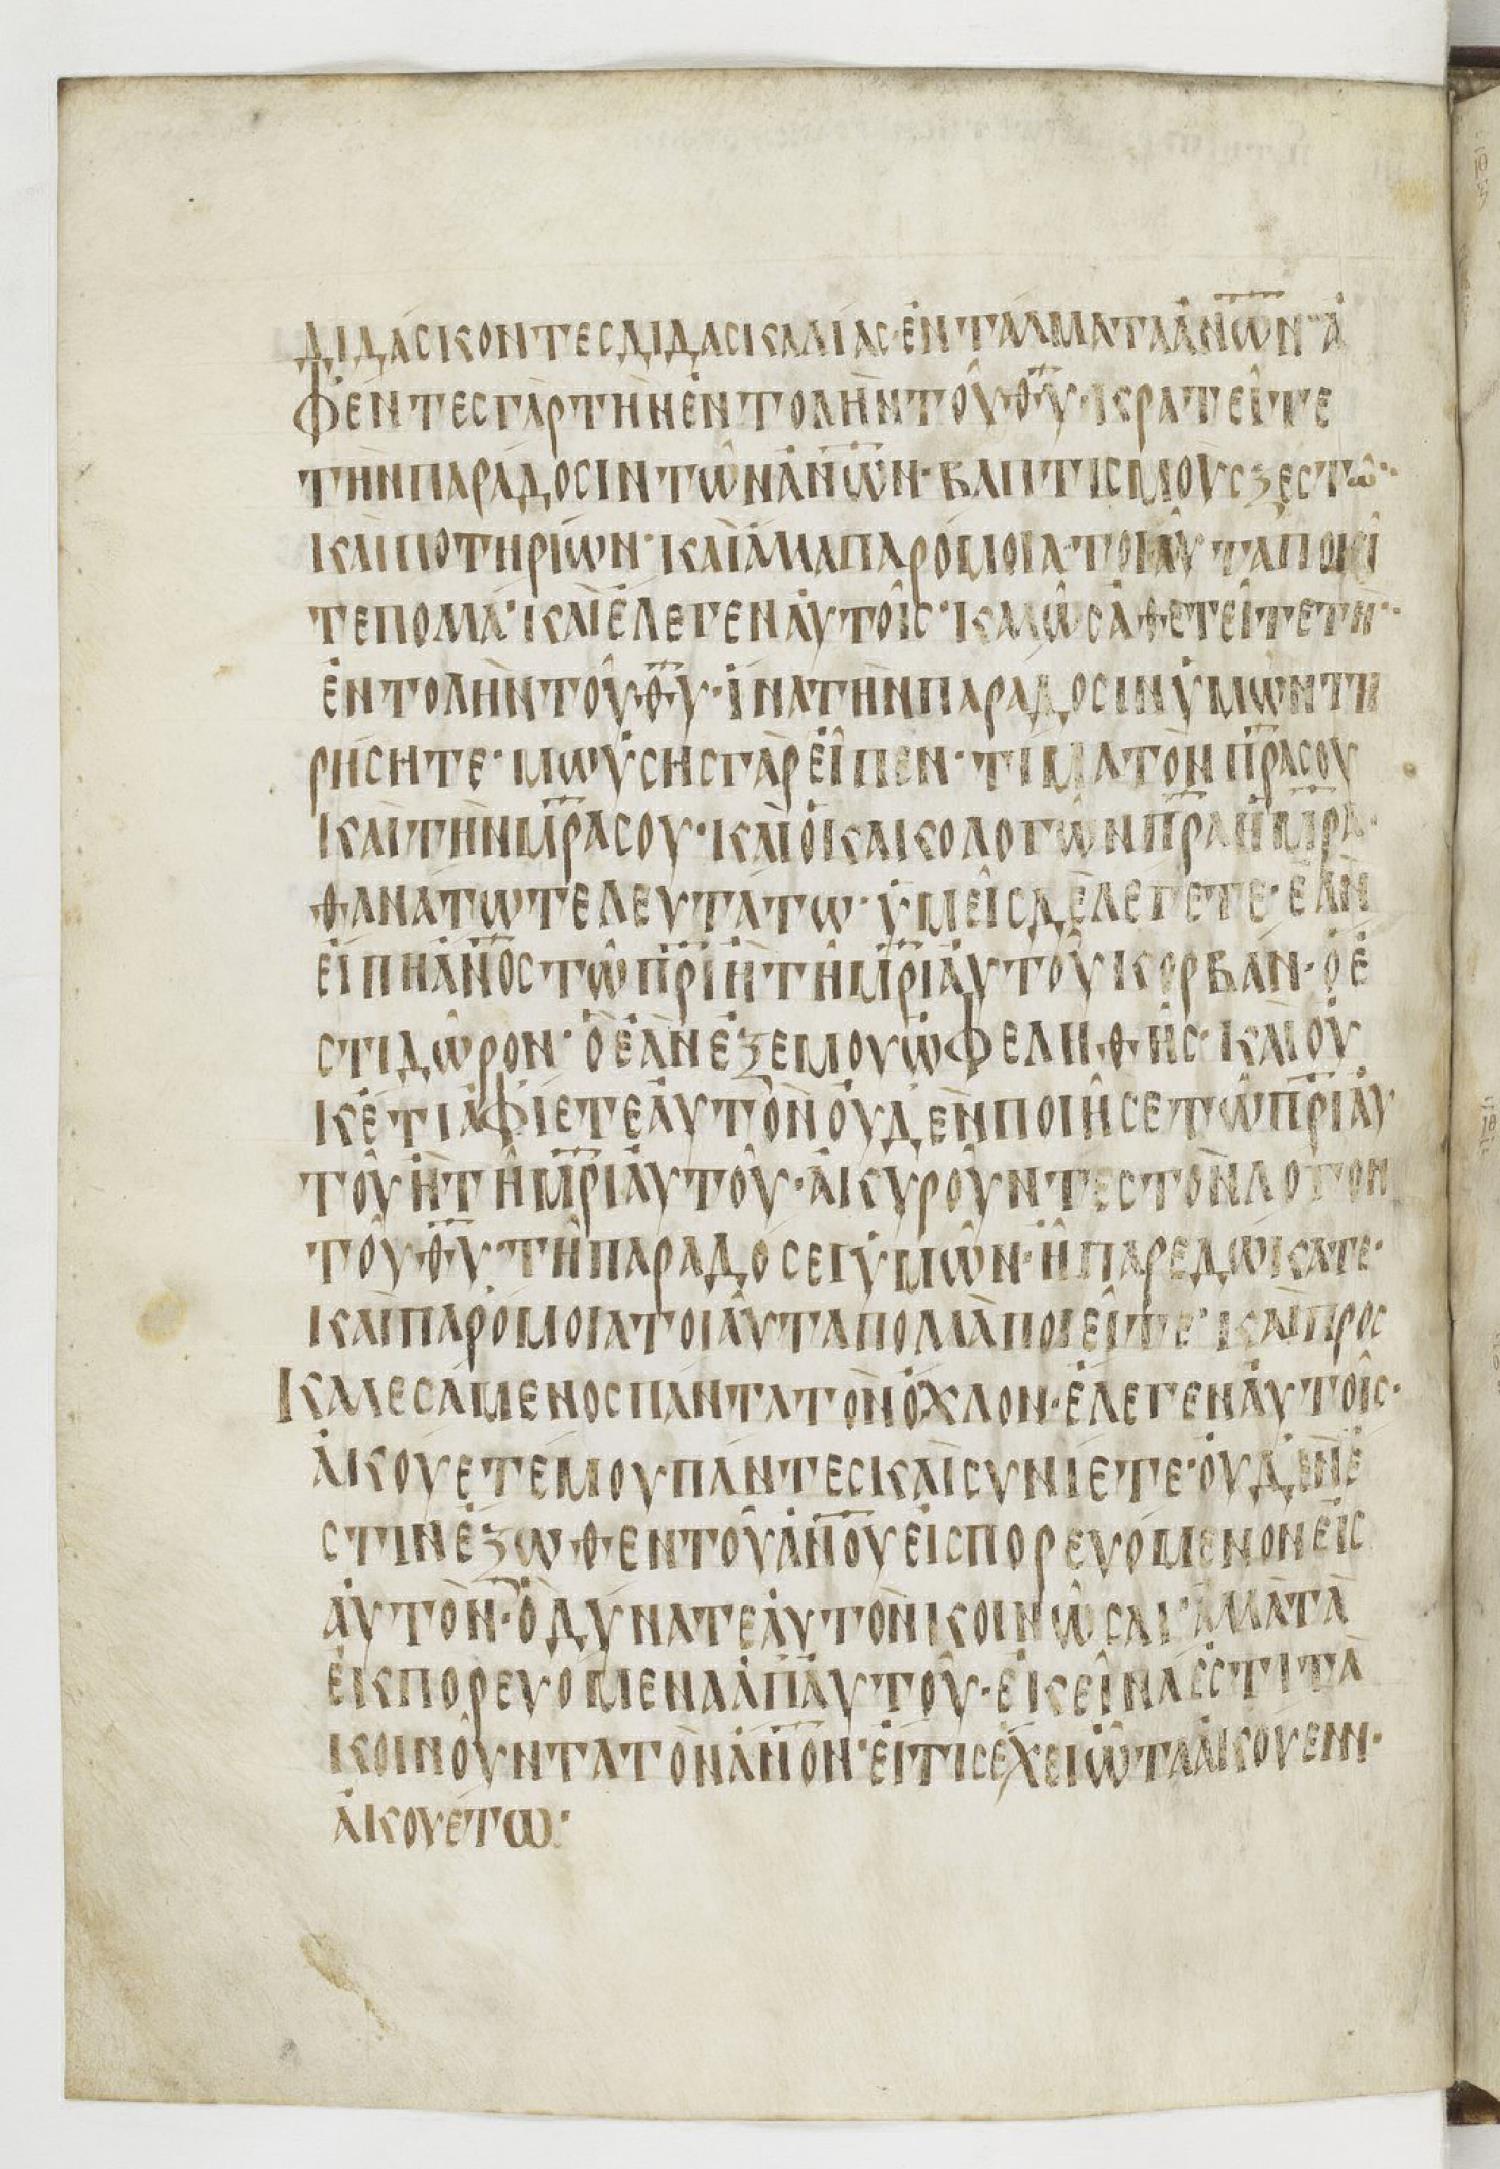 ΔΙΔΑΣΚΟΝΤΕΣ ΔΙΔΑΣΚΑΛΙΑΣ· ΕΝΤΑΛΜΑΤΑ ΑΝΩΝ· Α
ΦΕΝΤΕΣ ΓΑΡ ΤΗΝ ΕΝΤΟΛΗΝ ΤΟΥ ΘΥ· ΚΡΑΤΕΙΤΕ
ΤΗΝ ΠΑΡΑΔΟΣΙΝ ΤΩΝ ΑΝΩΝ· ΒΑΠΤΙΣΜΟΥΣ ΞΕΣΤΩ·
ΚΑΙ ΠΟΤΗΡΙΩΝ· ΚΑΙ ΑΛΛΑ ΠΑΡΟΜΟΙΑ ΤΟΙΑΥΤΑ ΠΟΙΕΙ
ΤΕ ΠΟΛΛΑ· ΚΑΙ ΕΛΕΓΕΝ ΑΥΤΟΙΣ· ΚΑΛΩΣ ΑΘΕΤΕΙΤΕ ΤΗ·
ΕΝΤΟΛΗΝ ΤΟΥ ΘΥ· ΙΝΑ ΤΗΝ ΠΑΡΑΔΟΣΙΝ ΥΜΩΝ ΤΗ
ΡΗΣΗΤΕ· ΜΩΥΣΗΣ ΓΑΡ ΕΙΠΕΝ· ΤΙΜΑ ΤΟΝ ΠΡΑ ΣΟΥ
ΚΑΙ ΤΗΝ ΜΡΑ ΣΟΥ· ΚΑΙ Ο ΚΑΚΟΛΟΓΩΝ ΠΡΑ Η ΜΡΑ·
ΘΑΝΑΤΩ ΤΕΛΕΥΤΑΤΩ· ΥΜΕΙΣ ΔΕ ΛΕΓΕΤΕ· ΕΑΝ
ΕΙΠΗ ΑΝΟΣ ΤΩ ΠΡΙ Η ΤΗ ΜΡΙ ΑΥΤΟΥ ΚΟΡΒΑΝ· Ο Ε
ΣΤΙ ΔΩΡΟΝ· Ο ΕΑΝ ΕΞ ΕΜΟΥ ΩΦΕΛΗΘΗΣ· ΚΑΙ ΟΥ
ΚΕΤΙ ΑΦΙΕΤΕ ΑΥΤΟΝ ΟΥΔΕΝ ΠΟΙΗΣΕ ΤΩ ΠΡΙ ΑΥ
ΤΟΥ Η ΤΗ ΜΡΙ ΑΥΤΟΥ· ΑΚΥΡΟΥΝΤΕΣ ΤΟΝ ΛΟΓΟΝ
ΤΟΥ ΘΥ ΤΗ ΠΑΡΑΔΟΣΕΙ ΥΜΩΝ· Η ΠΑΡΕΔΩΚΑΤΕ·
ΚΑΙ ΠΑΡΟΜΟΙΑ ΤΟΙΑΥΤΑ ΠΟΛΛΑ ΠΟΙΕΙΤΕ· ΚΑΙ ΠΡΟΣ
ΚΑΛΕΣΑΜΕΝΟΣ ΠΑΝΤΑ ΤΟΝ ΟΧΛΟΝ· ΕΛΕΓΕΝ ΑΥΤΟΙΣ·
ΑΚΟΥΕΤΕ ΜΟΥ ΠΑΝΤΕΣ ΚΑΙ ΣΥΝΙΕΤΕ· ΟΥΔΕΝ Ε
ΣΤΙΝ ΕΞΩΘΕΝ ΤΟΥ ΑΝΟΥ ΕΙΣΠΟΡΕΥΟΜΕΝΟΝ ΕΙΣ
ΑΥΤΟΝ· Ο ΔΥΝΑΤΕ ΑΥΤΟΝ ΚΟΙΝΩΣΑΙ· ΑΛΛΑ ΤΑ
ΕΚΠΟΡΕΥΟΜΕΝΑ ΑΠ ΑΥΤΟΥ· ΕΚΕΙΝΑ ΕΣΤΙ ΤΑ
ΚΟΙΝΟΥΝΤΑ ΤΟΝ ΑΝΟΝ· ΕΙ ΤΙΣ ΕΧΕΙ ΩΤΑ ΑΚΟΥΕΙΝ·
ΑΚΟΥΕΤΩ·